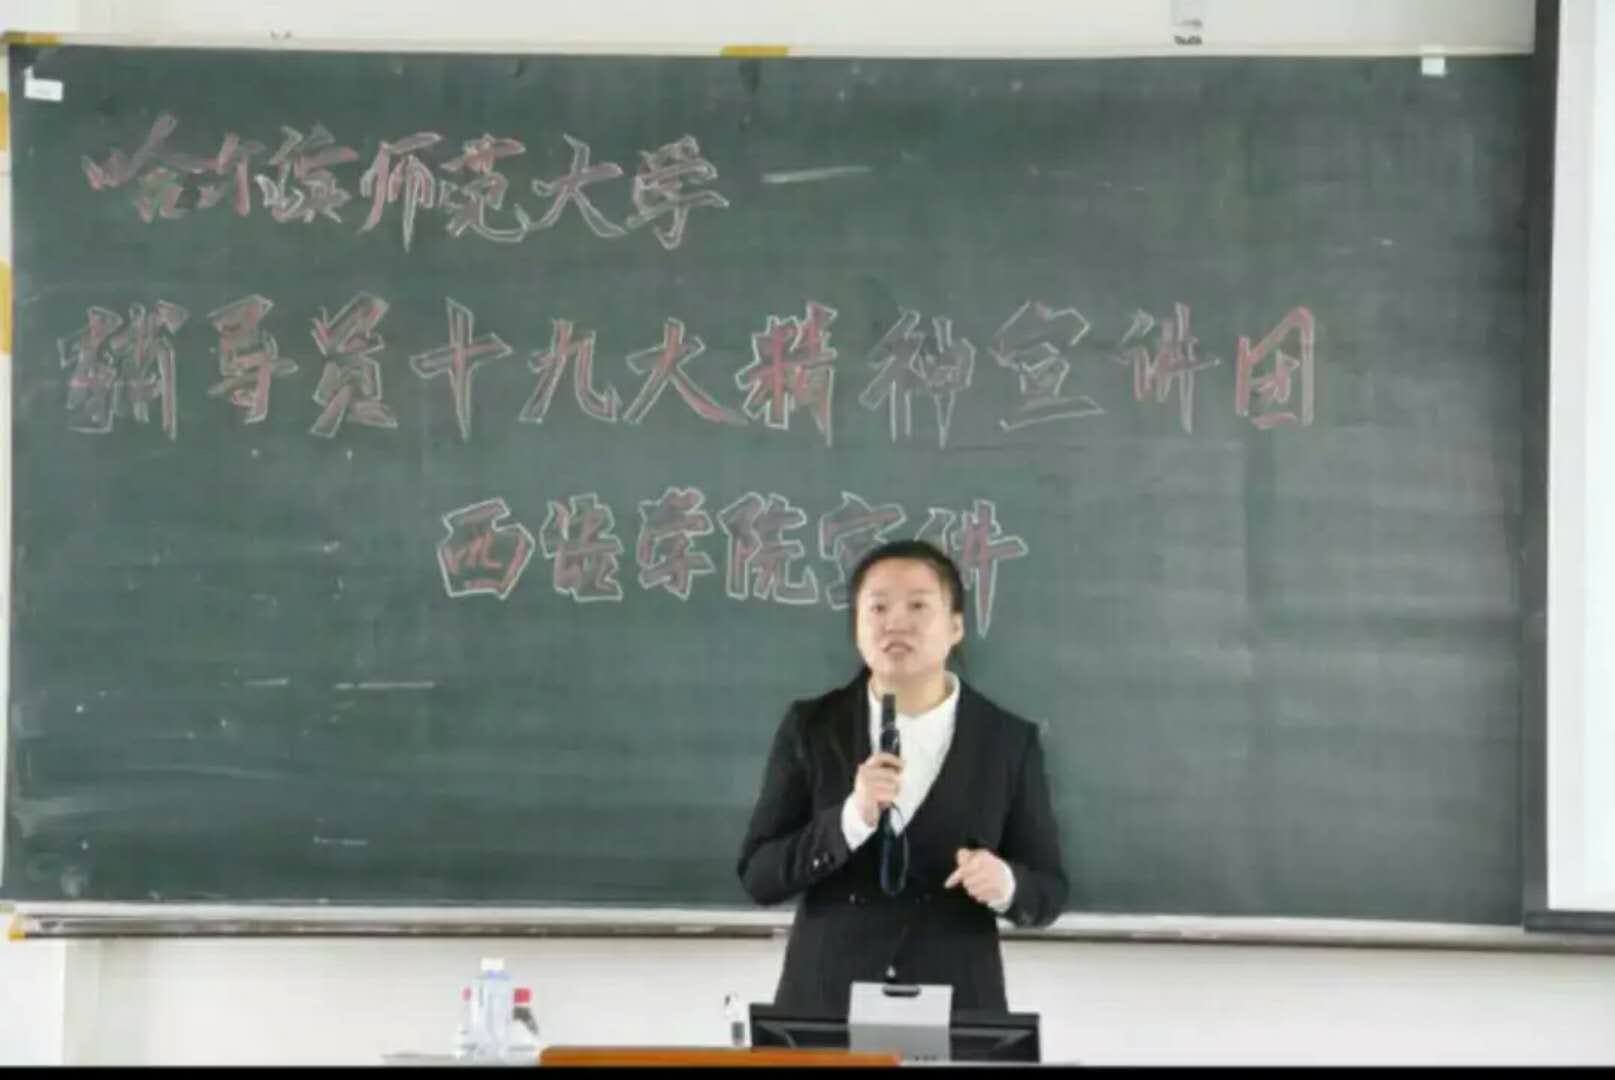 哈尔滨师范大学
辅导员十九大精神宣讲团
西语学院宣讲